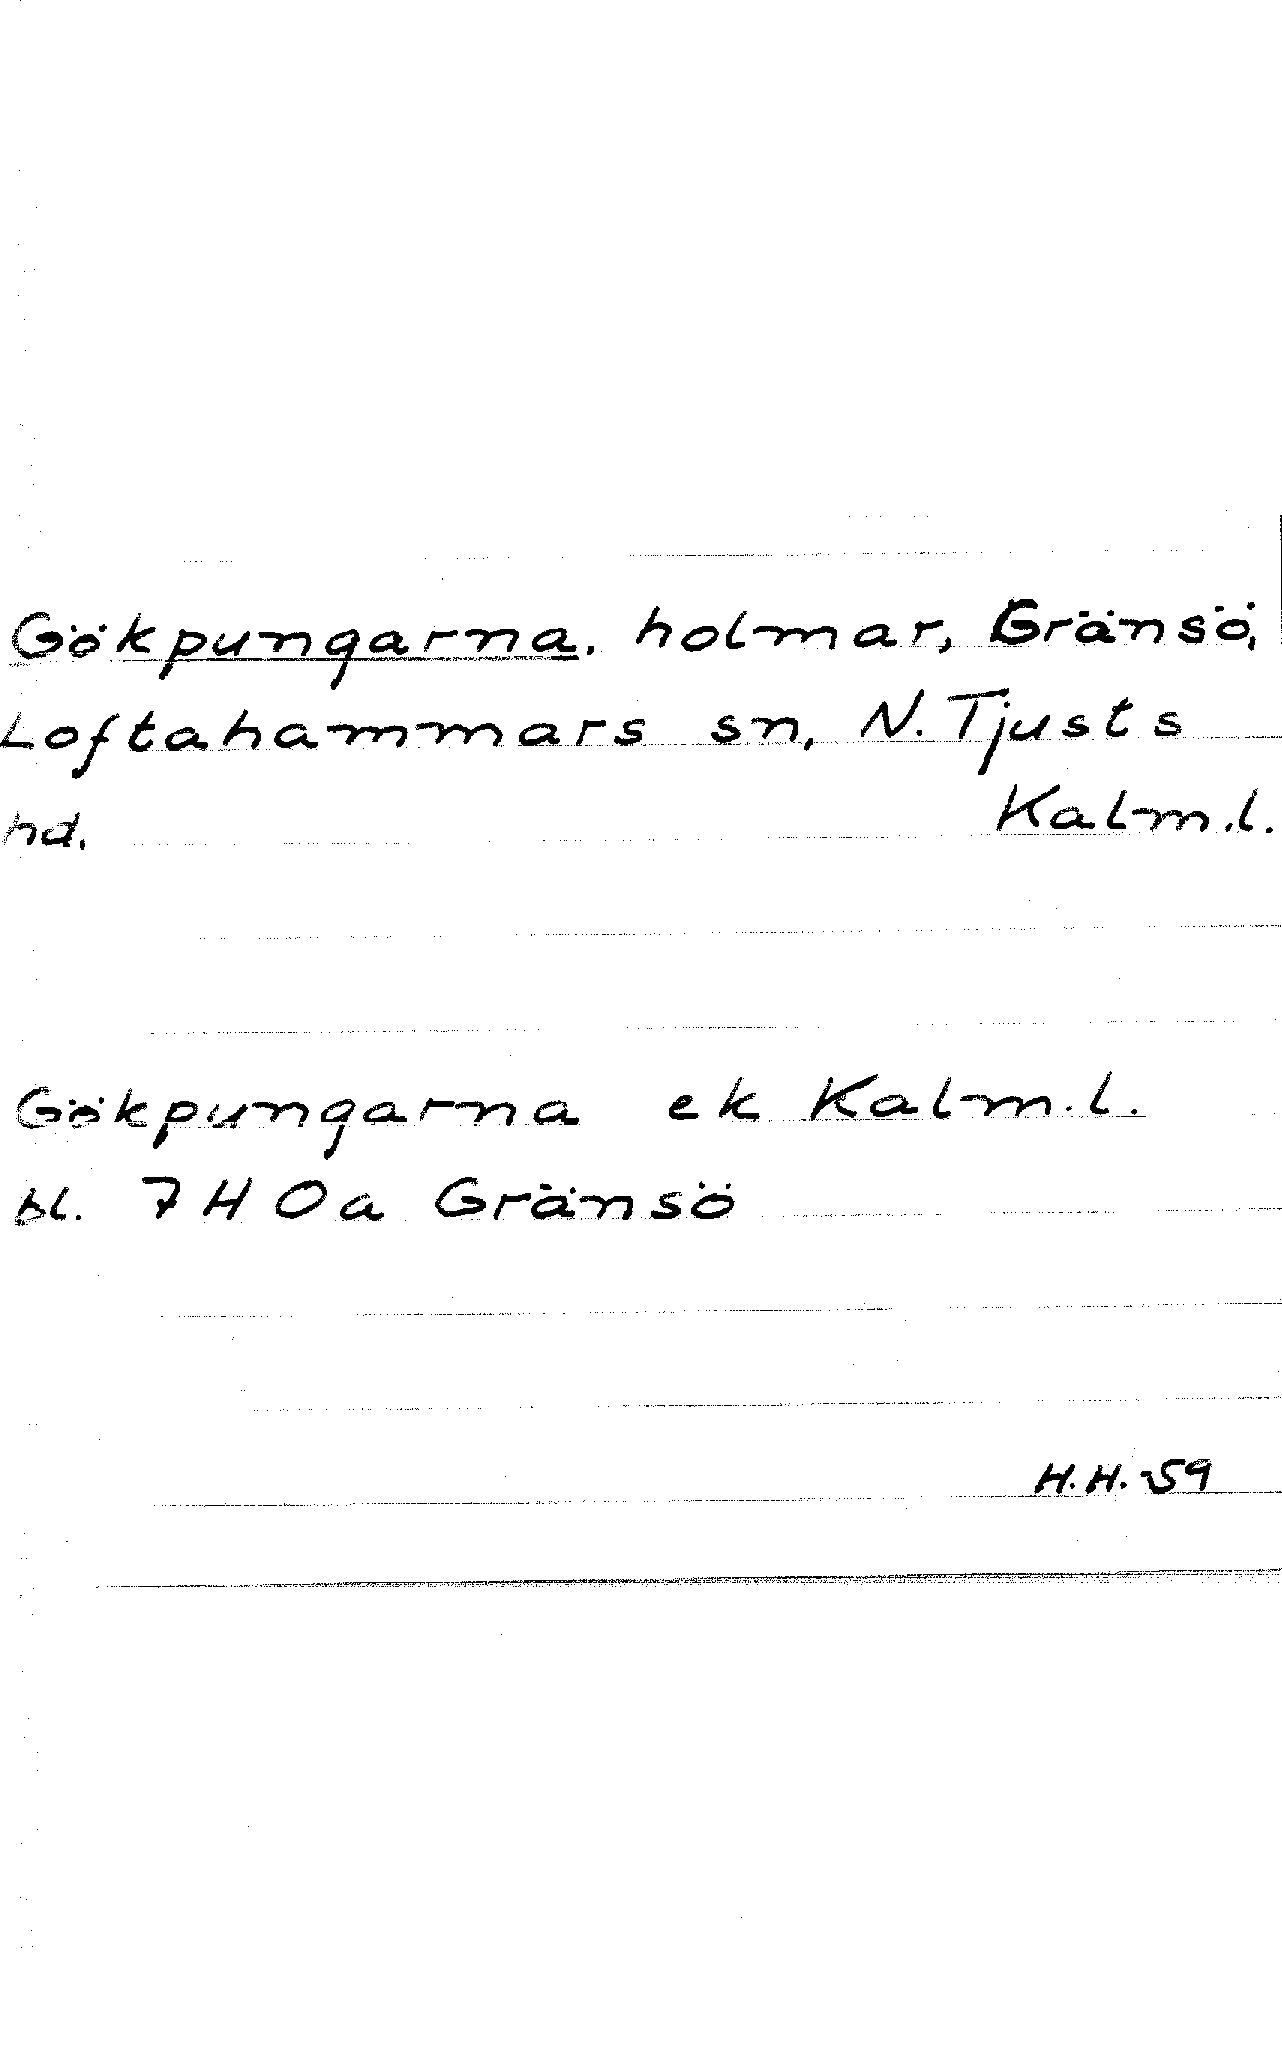 Gökpungarna, holmar, Gränsö,
Loftahammars sn, N. Tjusts
hd. Kalm.l.
Gökpungarna ek Kalm.l.
bl. 7 H 0a Gränsö
H.H.-59